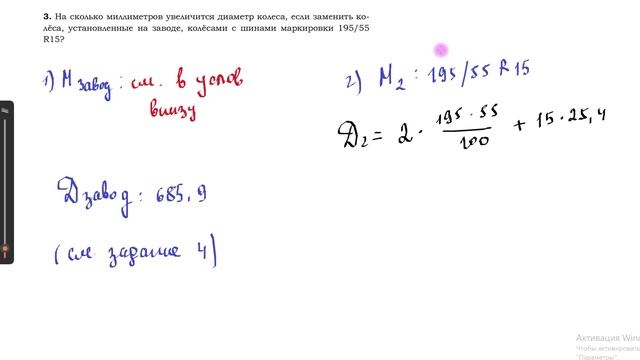 3. На сколько миллиметров увеличится диаметр колеса, если заменить ко-
лёса, установленные на заводе, колёсами с шинами маркировки 195/55
R15?
1) М завод : см. в услов
внизу
Dзавод : 685,9
(см задание 4)
2) М2 : 195/55 R 15
D2 = 2 · 195 · 55 / 100 + 15 · 25,4
Активация Win
Чтобы активировать
"Параметры".